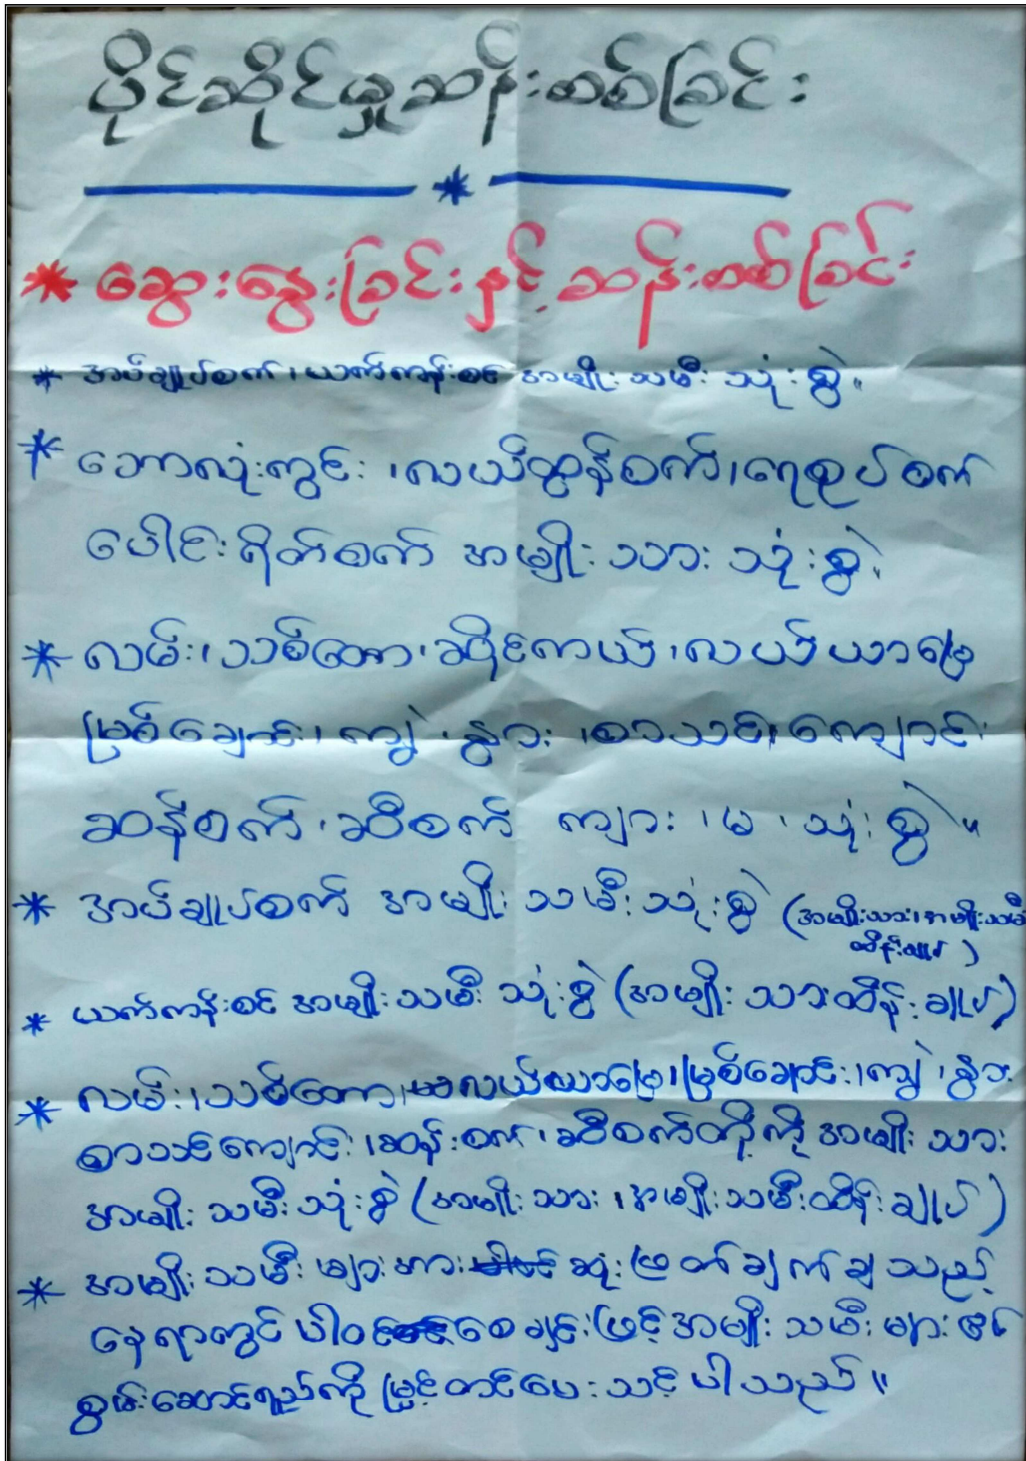 ပိုင်ဆိုင်မှုဆန်းစစ်ခြင်း
* ဆွေးနွေးခြင်းနှင့် ဆန်းစစ်ခြင်း
* အပ်ချုပ်စက်၊ ယက်ကန်းစင် အမျိုးသမီး သုံးစွဲ။
* ဘောလုံးကွင်း ၊လယ်ထွန်စက်၊ရေစုပ်စက်
ပေါင်းရိတ်စက် အမျိုးသား သုံးစွဲ။
* လမ်း၊သစ်တော၊ဆိုင်ကယ်၊လယ်ယာမြေ
မြစ်ချောင်း၊ ကျွဲ၊နွား ၊စာသင်ကျောင်း
ဆန်စက်၊ဆီစက် ကျား ၊မ ၊ သုံးစွဲ။
* အပ်ချုပ်စက် အမျိုးသမီးသုံးစွဲ (အမျိုးသား၊အမျိုးသမီး
ထိန်းချုပ်)
* ယက်ကန်းစင် အမျိုးသမီး သုံးစွဲ (အမျိုးသားထိန်းချုပ်)
* လမ်း၊သစ်တော၊လယ်ယာမြေ၊မြစ်ချောင်း၊ကျွဲ၊နွား
စာသင်ကျောင်း၊ဆန်းစက်၊ဆီစက်တို့ကို အမျိုးသား
အမျိုးသမီးသုံးစွဲ (အမျိုးသား၊အမျိုးသမီးထိန်းချုပ်)
* အမျိုးသမီးများအား ဆုံးဖြတ်ချက်ချသည့်
နေရာတွင် ပါဝင်စေချင်းဖြင့်အမျိုးသမီးများ၏
စွမ်းဆောင်ရည်ကို မြှင့်တင်ပေးသင့်ပါသည်။